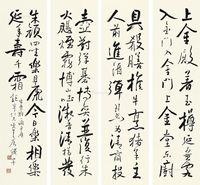 上金殿著玉樽延貴客
入金門入金門上金堂東廚
具殽膳椎牛烹豬羊主
人前進酒彈瑟為清商投
壺對彈棋博奕並復行朱
火颺煙霧博山吐微香清樽發
朱顏四坐樂且康今日樂相樂
延年壽千霜